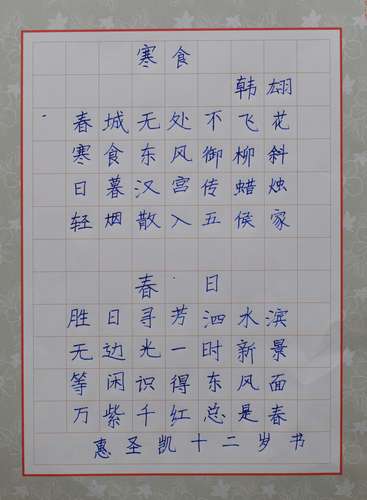 寒食
韩翃
春城无处不飞花
寒食东风御柳斜
日暮汉宫传蜡烛
轻烟散入五侯家
春日
胜日寻芳泗水滨
无边光一时新景
等闲识得东风面
万紫千红总是春
惠圣凯十二岁书